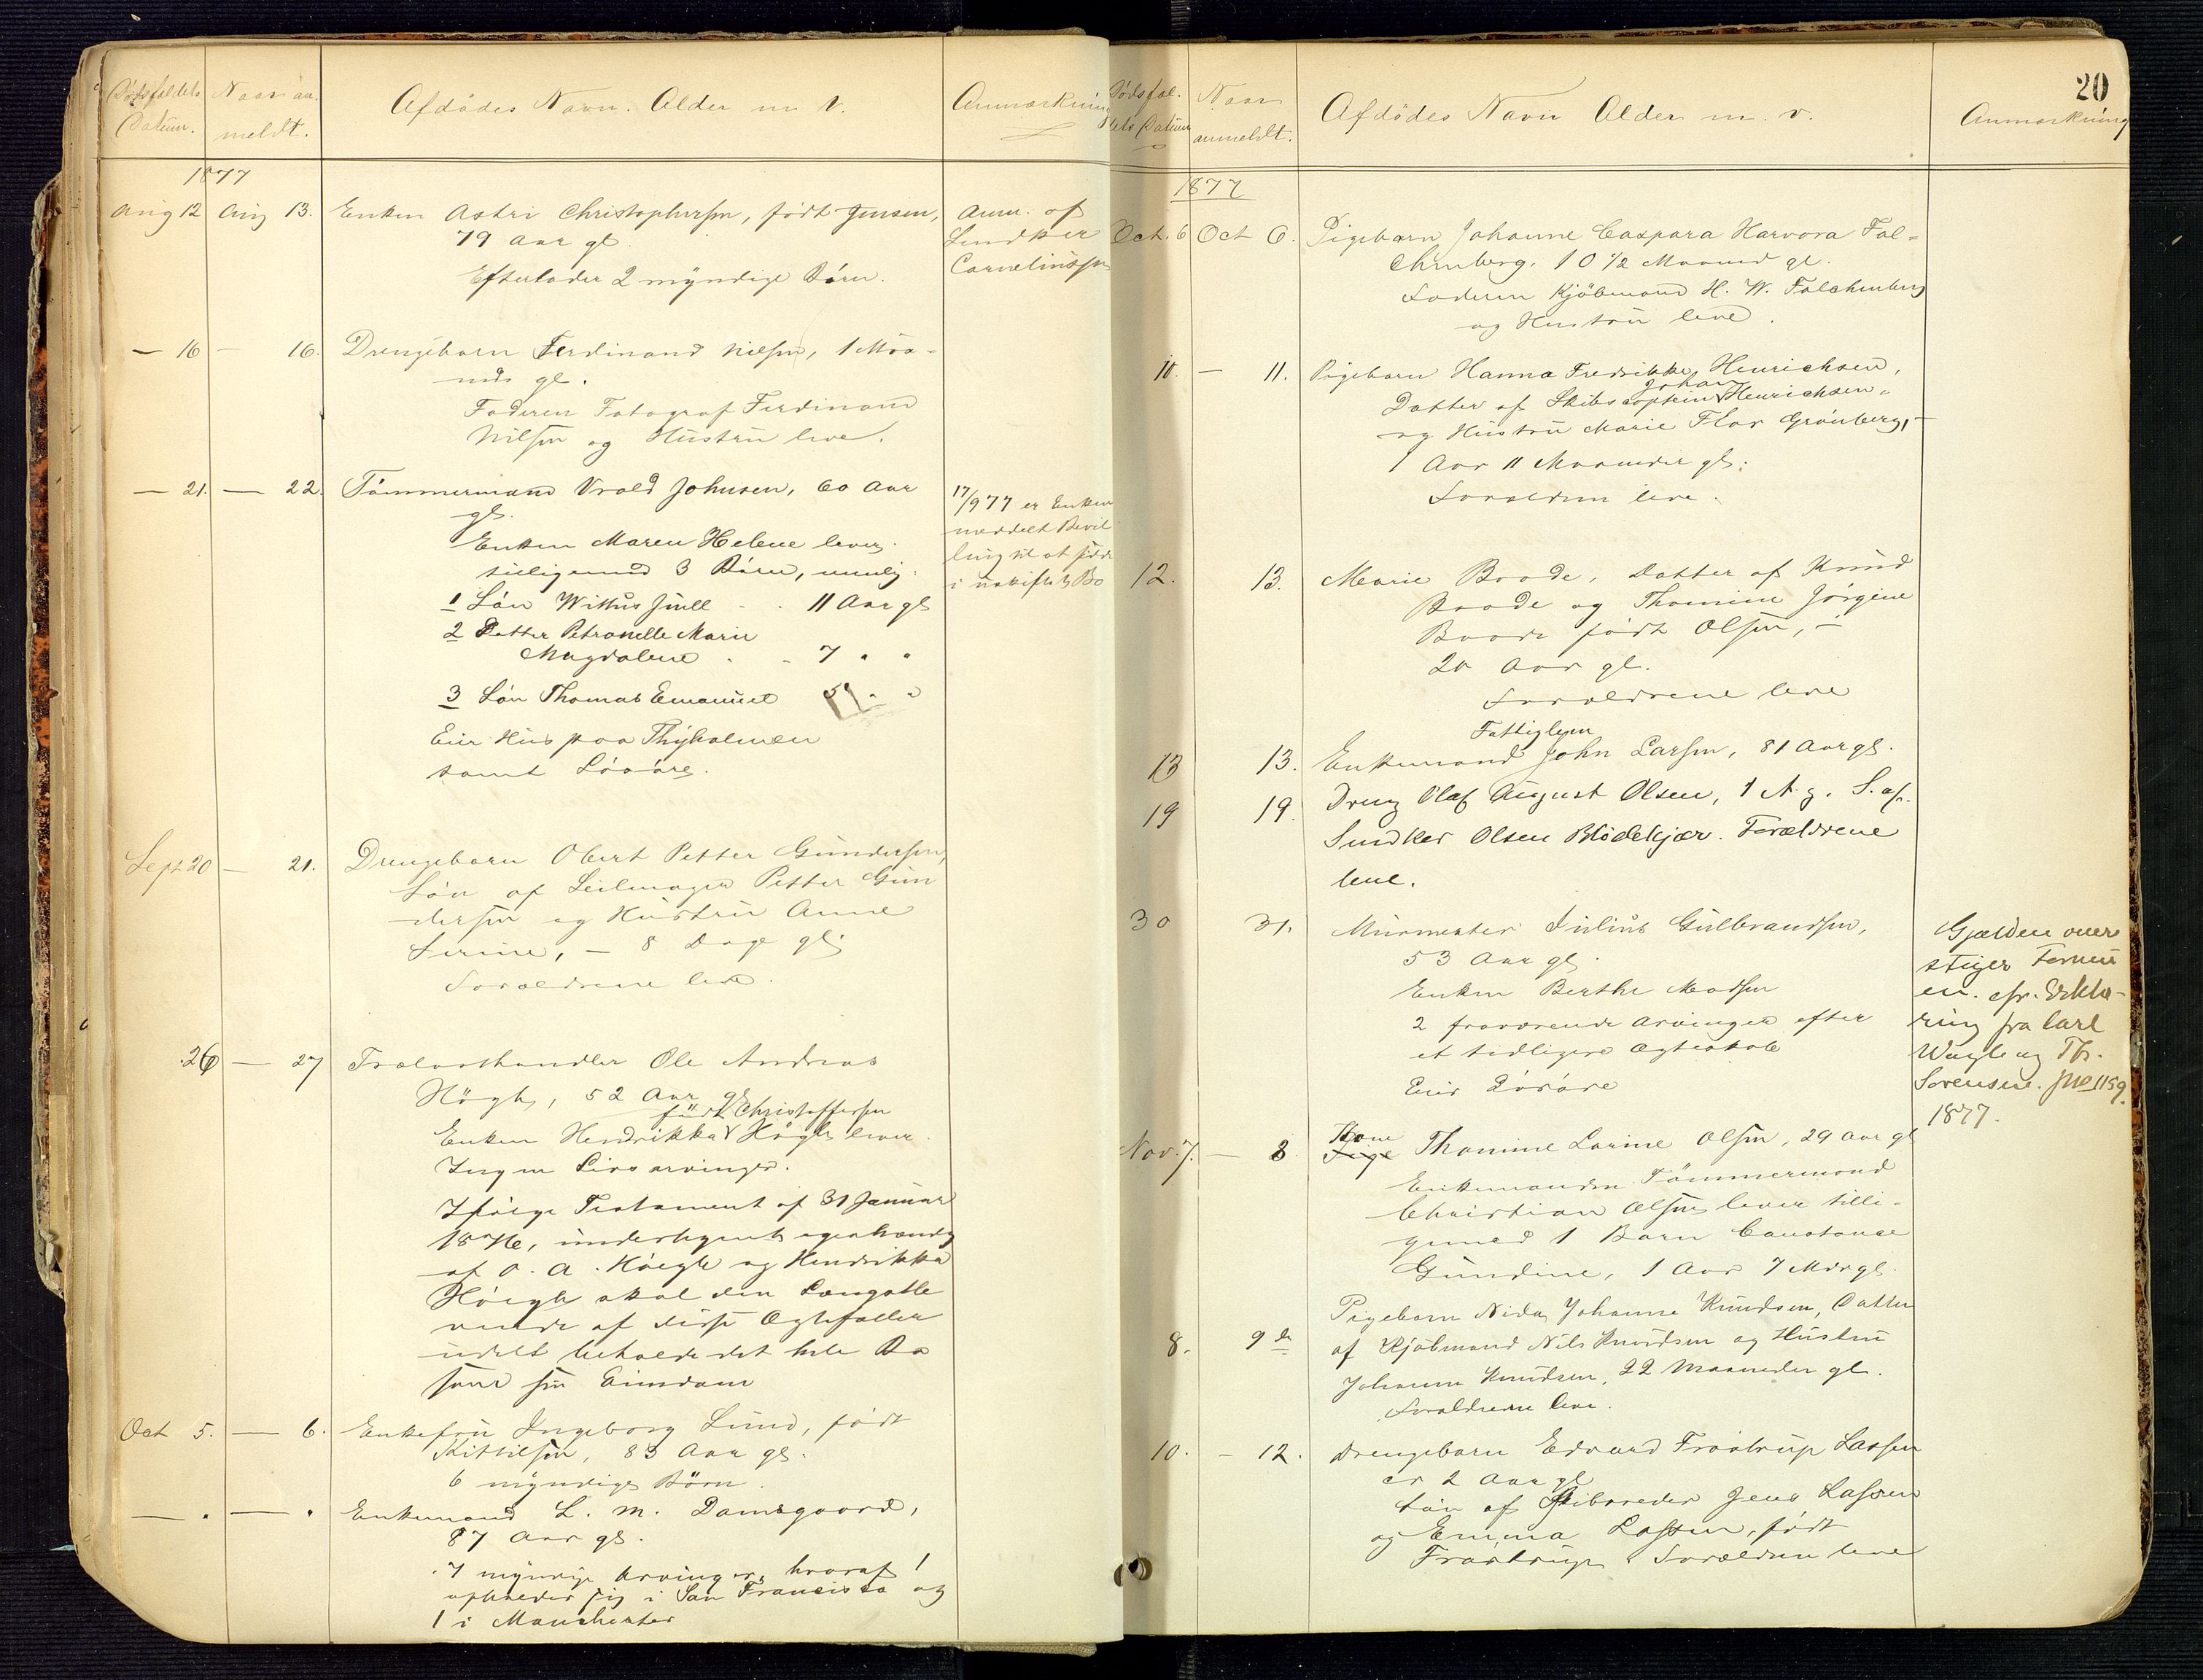 Dødsfaldets Datum.
Naar anmeldt.
Afdødes Navn. Alder m. v.
Anmærkning
1877
Aug 12 Aug 13. Enken Astri Christophersen, født Jensen,
79 Aar gl.
Efterlader 2 myndige Børn.
Anm. af
Carneliussen
— 16 — 16. Drengebarn Ferdinand Nilsen, 1 Maa-
neds gl.
Faderen Fotograf Ferdinand
Nilsen og Hustru leve.
— 21. — 22. Tømmermand Vrold Johnsen, 60 Aar
gl.
Enken Maren Helene lever
tilligemed 3 Børn, nemlig:
1 Søn Wittus Juell - . 11 Aar gl
2 Datter Petronelle Marie
Magdalene . - 7 " "
3 Søn Thomas Emanuel " "
Eier Hus paa Thyholmen
samt Løsøre.
17/9 77 er Enken
meddelt Bevil
ling til at sidde
i uskiftet Bo
Sept 20 — 21. Drengebarn Obert Petter Gundersen,
Søn af Seilmager Petter Gun
dersen og Hustru Anne
Serine, — 8 Dage gl.
Forældrene leve.
26 — 27 Trælasthandler Ole Andreas
Høegh, 52 Aar gl
født Christoffersen
Enken Hendrikka Høegh lever.
Ingen Livsarvinger.
Ifølge Testament af 31 Januar
1876, undertegnet egenhændig
af O. A. Høegh og Hendrikka
Høegh skal den Længstle
vende af disse Ægtefæller
udelt beholde det hele Bo
som sin Eiendom
Oct 5. — 6. Enkefru Ingeborg Lund, født
Kittilsen, 83 Aar gl.
6 myndige Børn.
— " — " Enkemand L. M. Damsgaard,
87 Aar gl.
7 myndige Arvinger, hvoraf 1
opholder sig i San Francisco og
1 i Manchester
20
Dødsfal-
dets Datum
Naar
anmeldt.
Afdødes Navn Alder m. v.
Anmærkning
1877
Oct. 6 Oct 6. Pigebarn Johanne Caspara Harvora Fal-
chenberg, 10 1/2 Maaned gl.
Faderen Kjøbmand H. W. Falchenberg
og Hustru leve.
10. — 11. Pigebarn Hanna Fredrikke Henrichsen,
Johan
Datter af Skibscaptein Henrichsen
og Hustru Marie Flor Grønberg, —
1 Aar 11 Maaneder gl.
Forældren leve.
12. 13. Marie Boode, Datter af Knud
Boode og Thomine Jørgine
Boode født Olsen, —
20 Aar gl.
Forældrene leve
Fattiglem
13 13. Enkemand John Larsen, 81 Aar gl.
19 19. Dreng Olaf August Olsen, 1 A. g. S. af
Snedker Olsen Blødekjær. Forældrene
leve.
30 31. Murmester Julius Gulbrandsen,
53 Aar gl.
Enken Berthe Madsen
2 fraværende Arvinger efter
et tidligere Ægteskab
Eier Løsøre
Gjælden over
stiger Formu
en. cfr. Erklæ-
ring fra Carl
og Th.
Sørensen. 1159
1877.
Nov. 7. — 8 Kone
Pige Thomine Larine Olsen, 29 Aar gl
Enkemanden Tømmermand
Christian Olsen lever tilli-
gemed 1 Barn Constance
Gundine, 1 Aar 7 Mdr gl.
8. 9de Pigebarn Nida Johanne Knudsen, Datter
af Kjøbmand Nils Knudsen og Hustru
Johanne Knudsen, 22 Maaneder gl.
Forældrene leve.
10. — 12. Drengebarn Edvard Frostrup Lassen
er 2 Aar gl
Søn af Skibsreder Jens Lassen
og Emma Lassen, født
Frostrup. Forældren leve